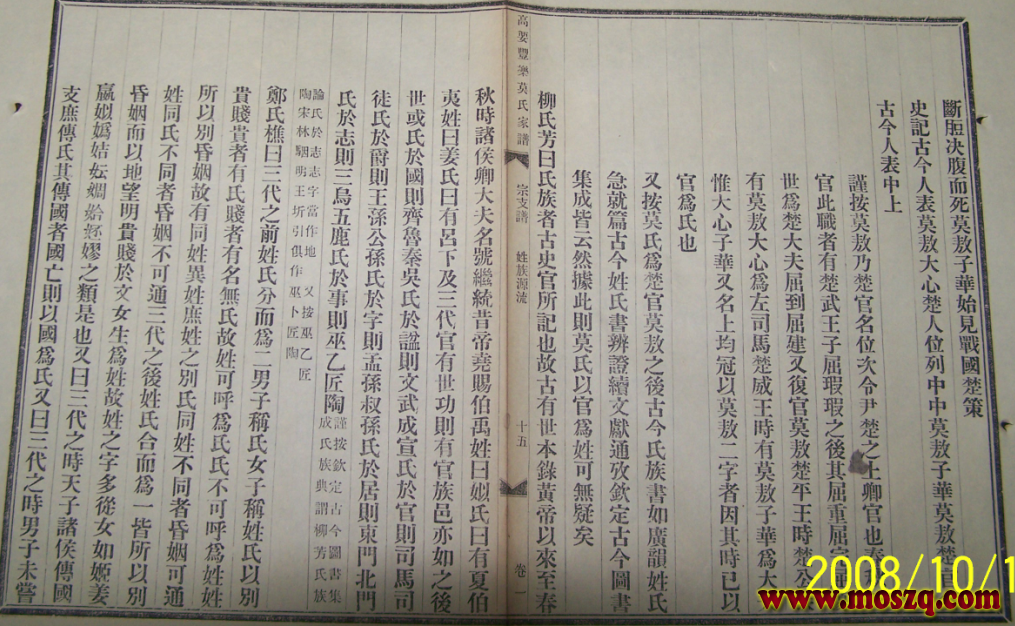 斷脰决腹而死莫敖子華始見戰國楚策
史記古今人表莫敖大心楚人位列中中莫敖子華莫敖楚官
古今人表中上
謹按莫敖乃楚官名位次令尹楚之上卿官也春
官此職者有楚武王子屈瑕瑕之後其屈重屈完
世爲楚大夫屈到屈建又復官莫敖楚平王時楚分
有莫敖大心爲左司馬楚威王時有莫敖子華爲大
惟大心子華又名上均冠以莫敖二字者因其時已以
官爲氏也
又按莫氏爲楚官莫敖之後古今氏族書如廣韻姓氏
急就篇古今姓氏書辨證續文獻通攷欽定古今圖書
集成皆云然據此則莫氏以官爲姓可無疑矣
柳氏芳曰氏族者古史官所記也故古有世本錄黃帝以來至春
高要豐樂莫氏家譜
宗支譜 姓族源流
十五
卷一
秋時諸侯卿大夫名號繼統昔帝堯賜伯禹姓曰姒氏曰有夏伯
夷姓曰姜氏曰有呂下及三代官有世功則有官族邑亦如之後
世或氏於國則齊魯秦吳氏於謚則文武成宣氏於官則司馬司
徒氏於爵則王孫公孫氏於字則孟孫叔孫氏於居則東門北門
氏於志則三烏五鹿氏於事則巫乙匠陶
謹按欽定古今圖書集
成氏族典謂柳芳氏族
論氏於志志字當作地 又按巫乙匠
陶宋林駉明王圻引俱作巫卜匠陶
鄭氏樵曰三代之前姓氏分而爲二男子稱氏女子稱姓氏以別
貴賤貴者有氏賤者有名無氏故姓可呼爲氏氏不可呼爲姓姓
所以別昏姻故有同姓異姓庶姓之別氏同姓不同者昏姻可通
姓同氏不同者昏姻不可通三代之後姓氏合而爲一皆所以別
昏姻而以地望明貴賤於文女生爲姓故姓之字多從女如姬姜
嬴姒嬀姞妘婤姶嫪之類是也又曰三代之時天子諸侯傳國
支庶傳氏其傳國者國亡則以國爲氏又曰三代之時男子未嘗
2008/10/1
www.moszq.com